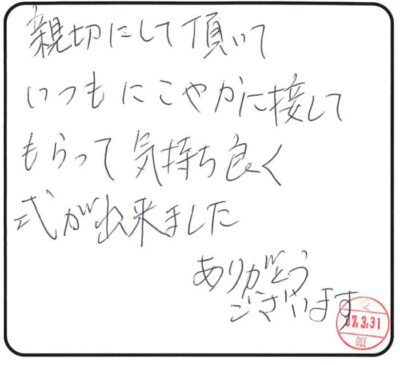 親切にして頂いて
いつもにこやかに接して
もらって気持ち良く
式が出来ました
ありがとう
ございます
17.3.31